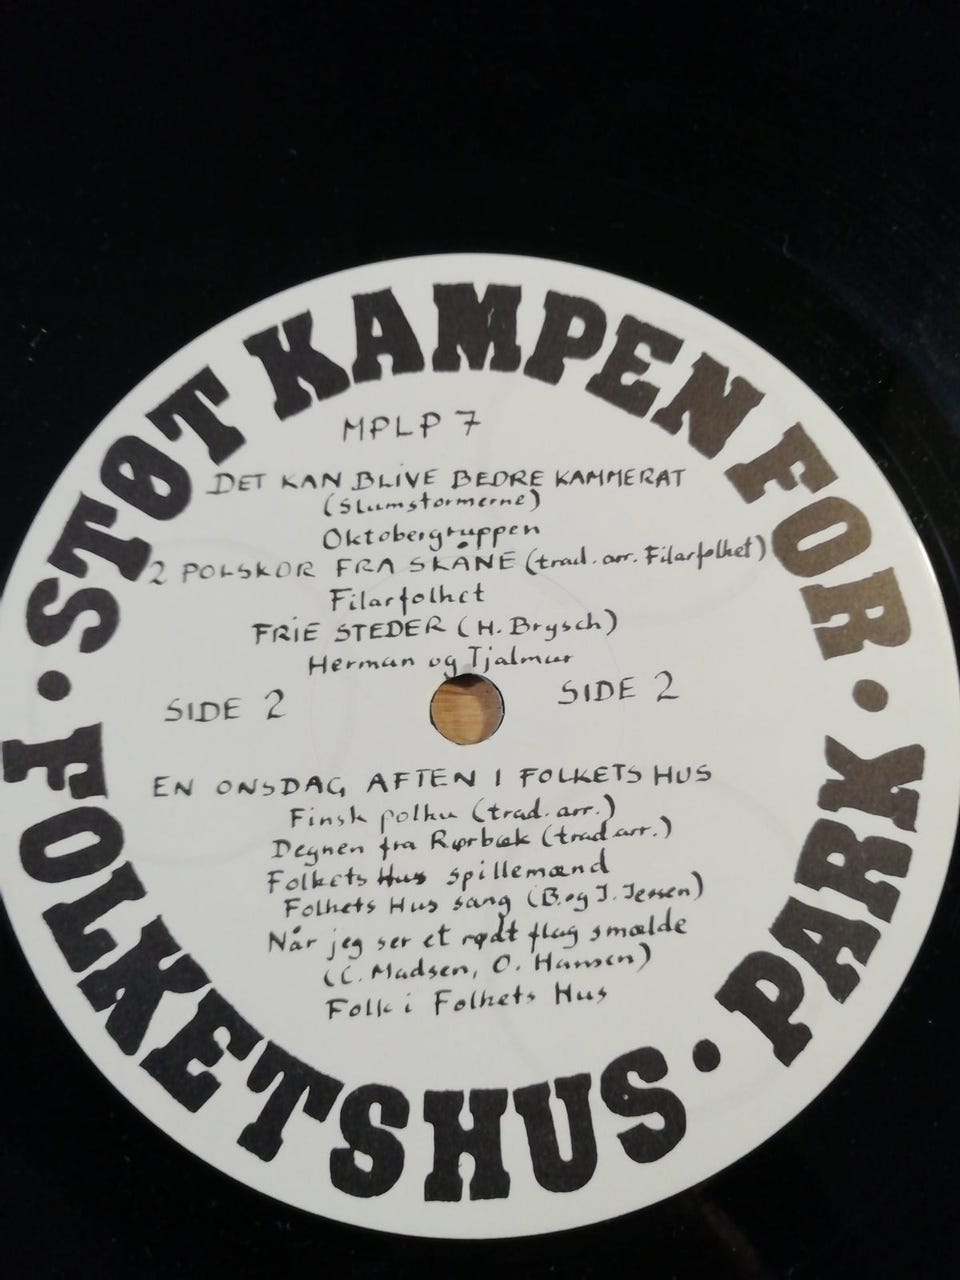 STØT KAMPEN FOR · PARK · FOLKETSHUS ·
MPLP 7
DET KAN BLIVE BEDRE KAMMERAT
(Slumstormerne)
Oktobergruppen
2 POLSKOR FRA SKÅNE (trad. arr. Filarfolket)
Filarfolket
FRIE STEDER (H. Brysch)
Herman og Tjalmur
SIDE 2 SIDE 2
EN ONSDAG AFTEN I FOLKETS HUS
Finsk polka (trad. arr.)
Degnen fra Rørbæk (trad arr.)
Folkets Hus spillemænd
Folkets Hus sang (B. og J. Jessen)
Når jeg ser et rødt flag smælde
(C. Madsen, O. Hansen)
Folk i Folkets Hus